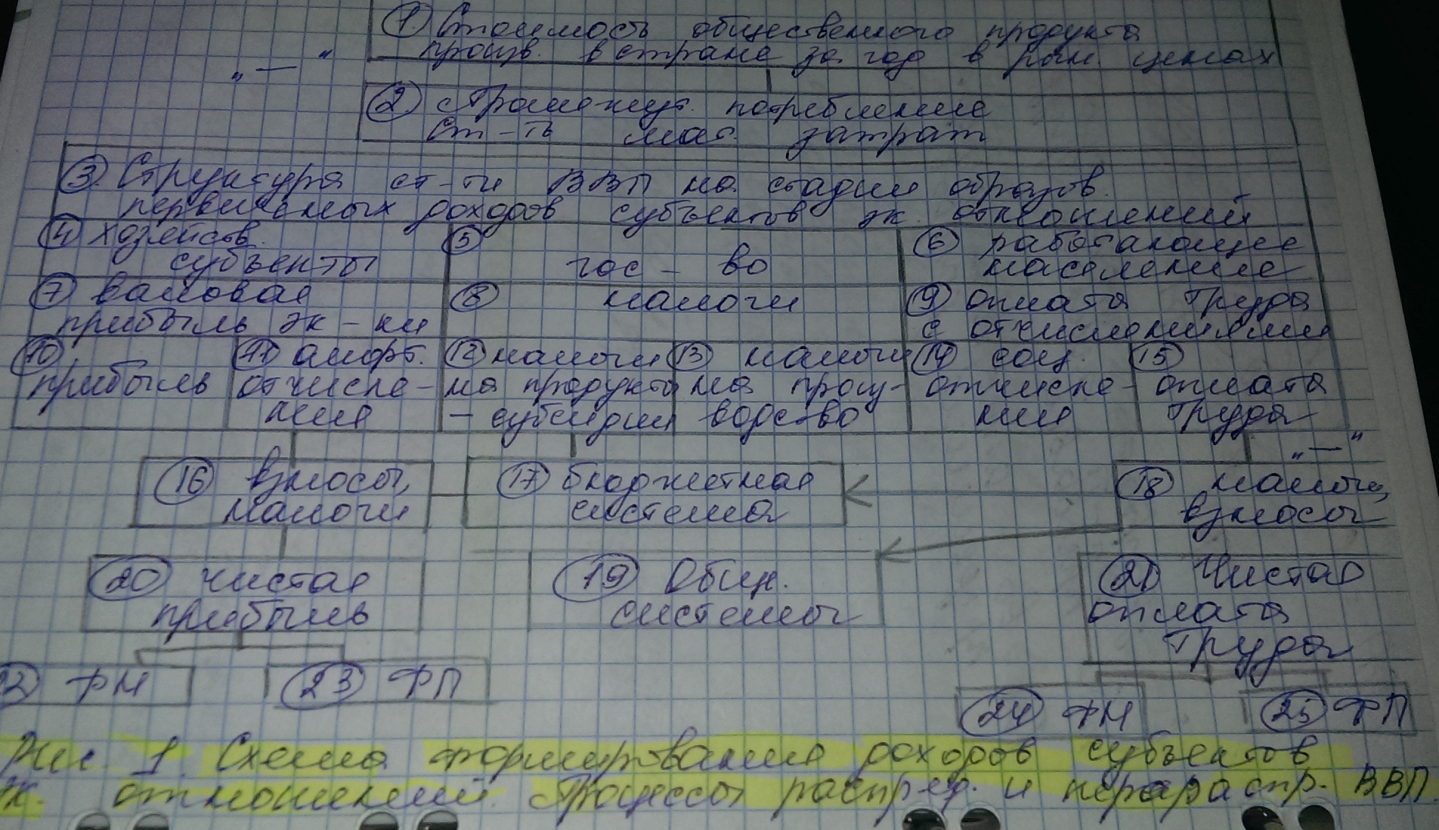 ① Стоимость общественного продукта
произв. в стране за год в рын ценах
„ — “
② Промежут. потребление
Ст-ть мат. затрат
③ Структура ст-ти ВВП на стадии образов.
первичных доходов субъектов эк. отношений
④ хозяйств. ⑤ ⑥ работающее
субъекты гос-во население
⑦ валовая ⑧ налоги ⑨ оплата труда
прибыль эк-ки с отчислениями
⑩ ⑪ аморт. ⑫ налоги ⑬ налоги ⑭ соц. ⑮
прибыль отчисле- на продукты на произ- отчисле- оплата
ния - субсидии водство ния труда
„ — “
⑯ взносы, ⑰ бюджетная ⑱ налоги,
налоги система взносы
⑳ чистая ⑲ Общ. ㉑ Чистая
прибыль системы оплата
труда
22 ФН ㉓ ФП
㉔ ФН ㉕ ФП
Рис. 1. Схема формирования доходов субъектов
эк. отношений. Процессы распред. и перераспр. ВВП.